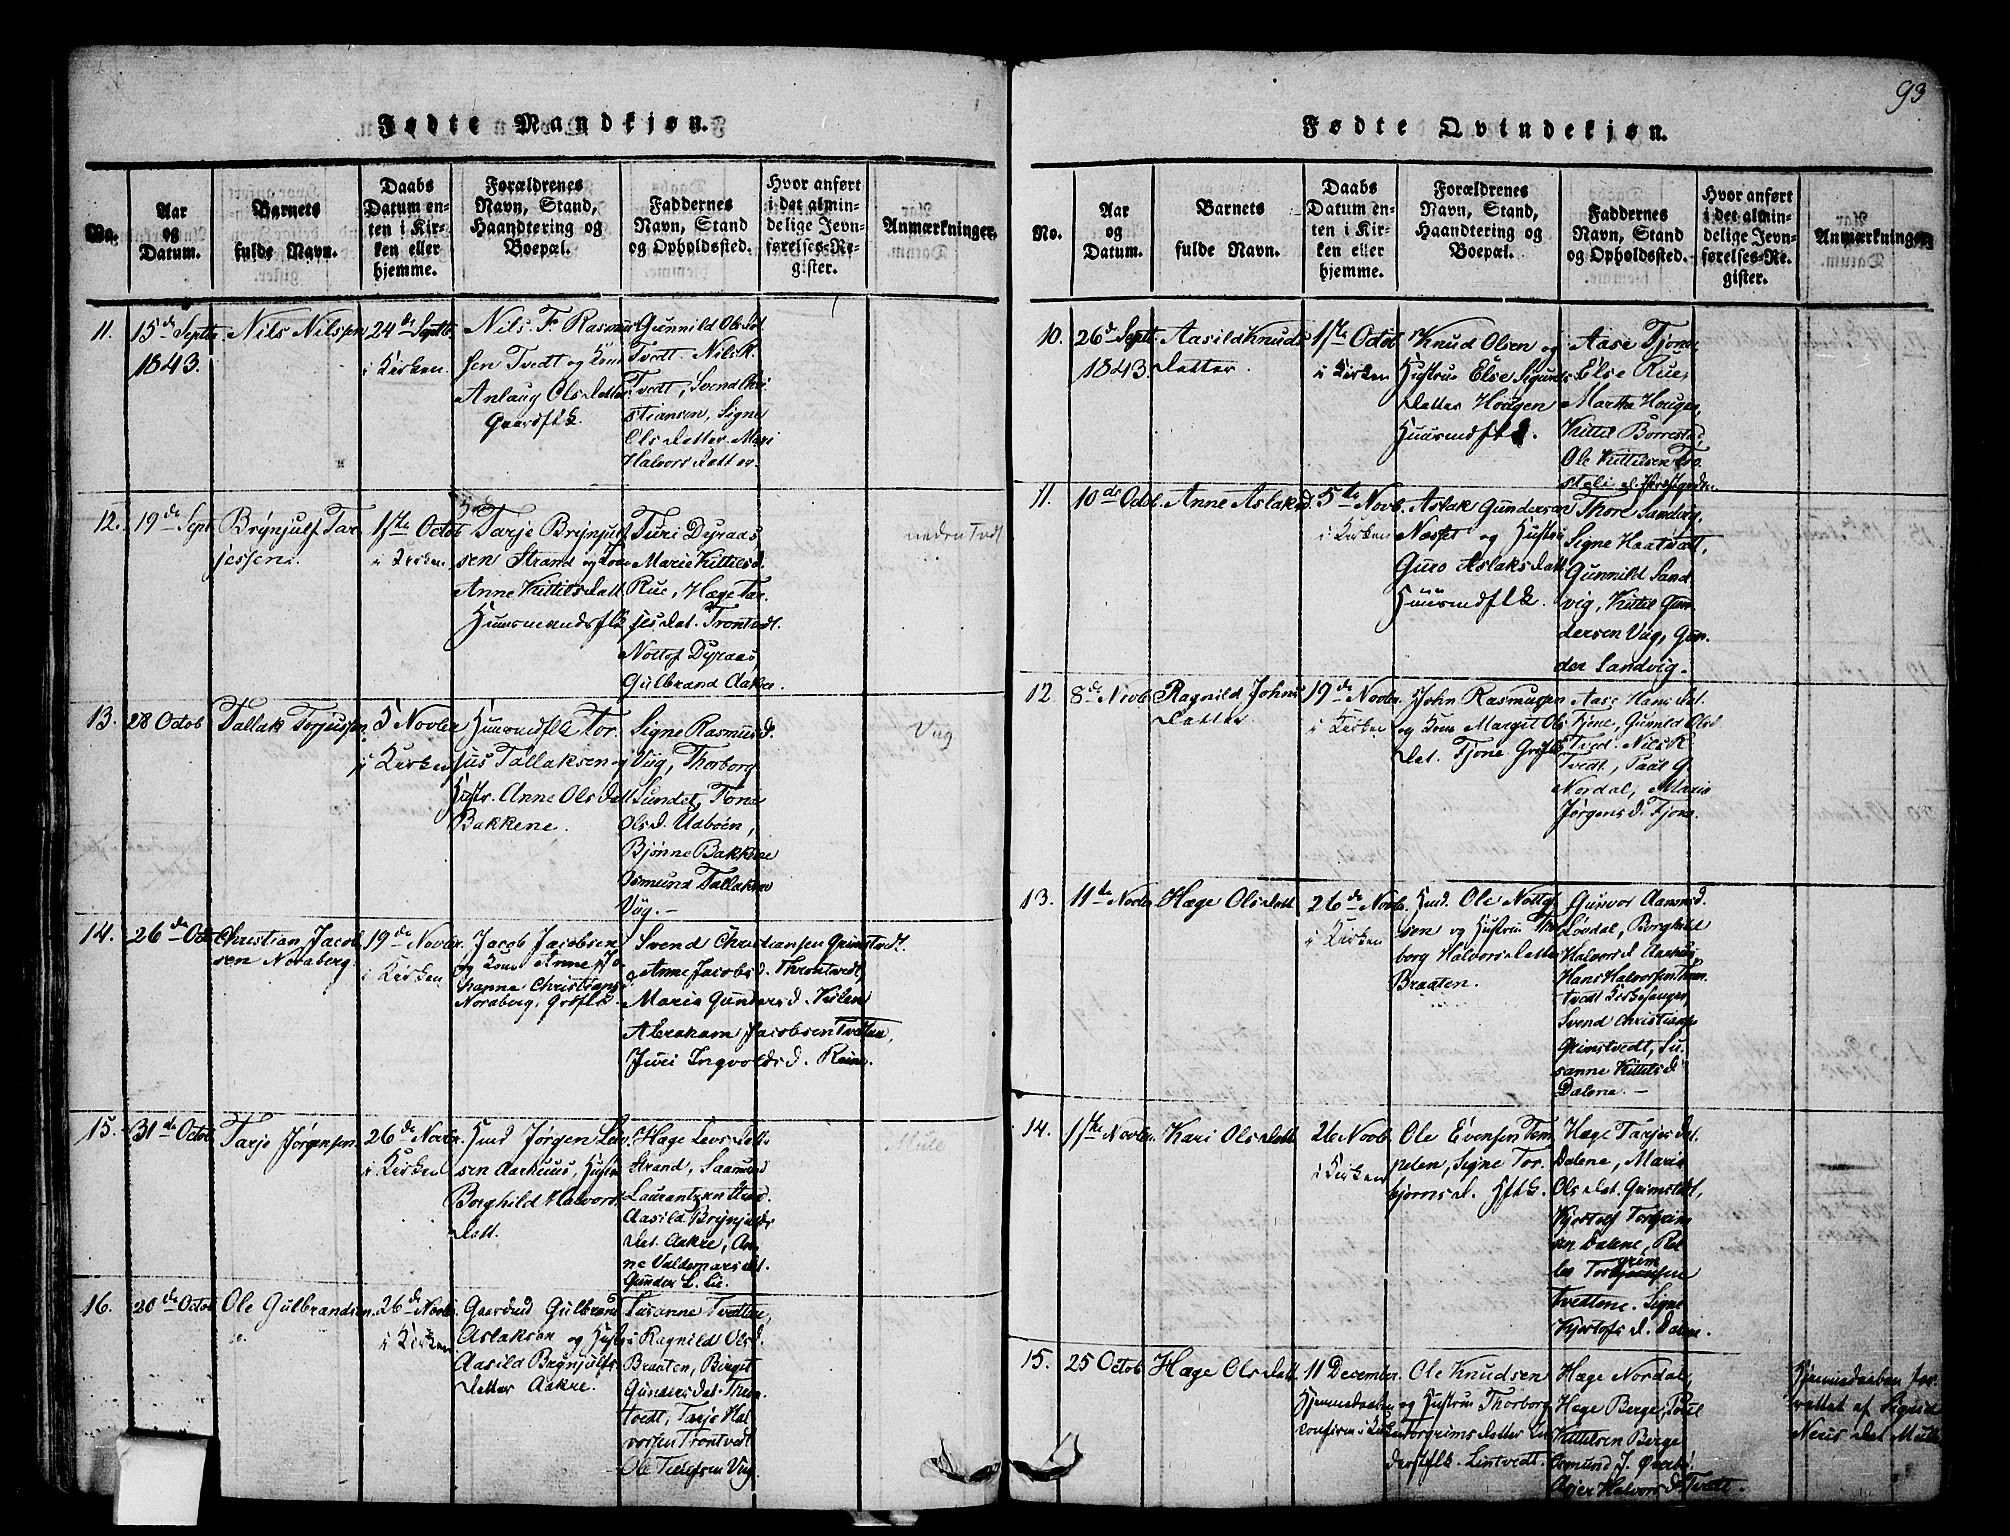 93
Fødte Mandkjøn.
No.
Aar
og
Datum.
Barnets
fulde Navn.
Daabs
Datum en-
ten i Kir-
ken eller
hjemme.
Forældrenes
Navn, Stand,
Haandtering og
Boepæl.
Faddernes
Navn, Stand
og Opholdssted.
Hvor anført
i det almin-
delige Jevn-
førelses-Re-
gister.
Anmærkninger.
11.
15de Septbr
1843.
Nils Nilsen
24de Septb.
i Kirken
Nils F. Rasmus
sen Tvedt og Kone
Anlaug Olsdatter
Gaardflk.
Gunnild Olsdat.
Tvedt. Nils K.
Tvedt, Svend Chri
stiansen, Signe
Olsdatter. Mari
Halvorsdatter.
12.
19de Sept.
Brynjulf Tar
jessen.
1ste Octob
i Kirken
Tarje Brynjulf
sen Strand og Kone
Anne Kittilsdatt
Huusmandsflk
Turi Dyraas,
Marie Kittilsd.
Rue, Hæge Tar
jesdat. Trontvedt.
Nottof Dyraas,
Gulbrand Aakre.
neden Tvdt
13.
28 Octob
Tallak Torjussen
5 Novbr
i Kirken
Huusmdflk Tor
jus Tallaksen og
Hustr. Anne Olsdatt
Bakkene.
Signe Rasmusd.
Vüg, Thorborg
Sundet, Tone
Olsd. Uaboen,
Bjønne Bakkene
Osmund Tallaksen
Vüg.
Vüg
14.
26de Oct
Christian Jacob
sen Noraberg.
19de Novbr.
i Kirken
Jacob Jacobsen
og Kone Anne Jo
hanne Christians
Noraberg, Grdflk.
Svend Christiansen Grimstvedt.
Anne Jacobsd. Throntvedt,
Maria Gundersd. Kilen
Abraham Jacobsen Tvetten,
Juri Ingvoldsd. Reine.
15.
31de Octob
Tarje Jørgensen
26de Novbr.
i Kirken
Hmd Jørgen Lev
sen Aarhuus, Hustru
Borghild Halvors
datt.
Hæge Levsdatt.
Strand, Saamund
Laurantzen Strand.
Aasild Brynjulfs
dat. Aakre, An
ne Valdemarsdat.
Gunder L. Lie.
Mule
16.
20de Octob
Ole Gulbrandsen
26de Novb.
i Kirken
Gaardmd Gulbrand
Aslaksen og Hustru
Aasild Brynjulfs
datter Aakre.
Susanne Tvetten,
Ragnild Olsd.
Braaten, Berget
Gundersdat. Thron
tvedt, Tarje Hal
vorsen Trontvedt
Ole Tellefsen Vüg
Fødte Qvindekjøn.
No.
Aar
og
Datum.
Barnets
fulde Navn.
Daabs
Datum en-
ten i Kir-
ken eller
hjemme.
Forældrenes
Navn, Stand,
Haandtering og
Boepæl.
Faddernes
Navn, Stand
og Opholdssted.
Hvor anført
i det almin-
delige Jevn-
førelses-Re-
gister.
Anmærkninger
10.
26de Septb
1843.
Aasild Knuds
datter.
1ste Octob
i Kirken
Knud Olsen og
Hustrue Else Sigurds
datter Hougen
Huusmdflk.
Aase Fjone,
Else Rue,
Martha Hougen,
Kittil Borrestad,
Ole Kittilsen Tro
11.
10de Octb.
Anne Aslaksd.
5te Novb.
i Kirken
Aslak Gundersen
Næset og Hustru
Guro Aslaksdatt
Huusmdflk.
Thore Sandvig,
Signe Haatvedt,
Gunnild Sand
vig, Kittil Gun
dersen Vüg, Gun
der Sandvig.
12
8de Novb.
Ragnild Johns
datter
19de Novbr.
i Kirken
John Rasmusen
og Kone Margit Ols
dat. Fjone Grdflk
Aase Hansdat.
Fjone, Gunnild Olsd.
Tved. Nils K.
Tvedt, Paal G.
Nordal, Marie
Jørgensd. Fjone.
13.
11te Novbr
Hæge Olsdatt
26de Novb.
i Kirken
Hmd. Ole Nottof
sen og Hustru Thor
borg Halvorsdatter
Braaten.
Gunvor Aamundsd.
Løvdal, Borghild
Halvorsd. Aarhus,
Hans Halvorsen Thron
tvedt Kirkesanger,
Svend Christians
Grimstvedt, Su
sanne Kittilsd
Dalene.
14.
1ste Novbr.
Kari Olsdatt
26 Novb.
i Kirken
Ole Evensen Tem
pelen, Signe Tor
bjørnsd. Hflk.
Hæge Tarjesdat.
Dalene, Maria
Olsdat. Grimstvdt,
Kjostolf Torgrim
sen Dalene,
Tvedtene. Signe
Kjostofsd. Dalene.
15.
25 Octob
Hæge Olsdatt.
11 December.
Hjemmedøbt
confirm. i Kirken
Ole Knudsen
og Hustru Thorborg
Torgrimsdatter
Lintvedt.
Hæge Nordal,
Hæge Berge, Poul
Kittilsen Berge
Osmund J. Øverbø
Asjer Halvorsd. Tvedt.
Hjemmedaaben for
rettet af Sigrid
Neris dat Mule